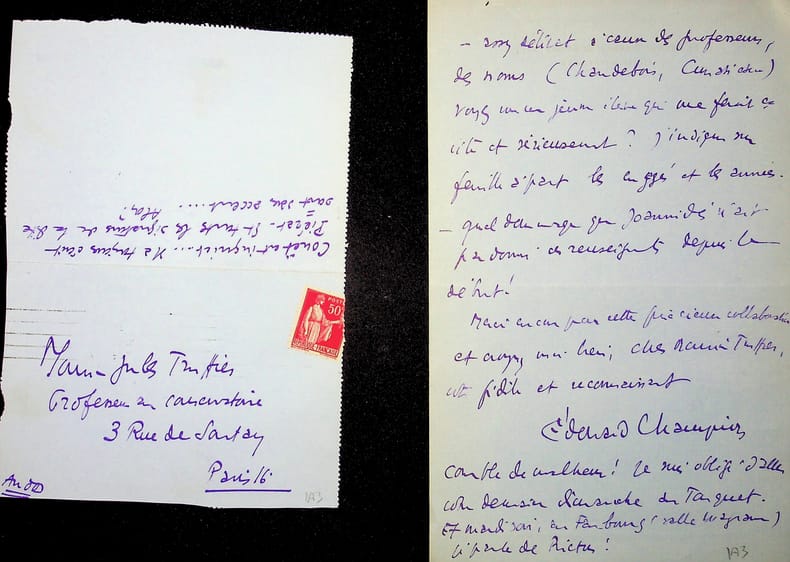 Couët est inquiet... Il a toujours écrit
Piérat. Et toutes les signatures de la Dite
sont sans accent....
Alors?
POSTES
50c
RÉPUBLIQUE FRANÇAISE
Monsieur Jules Truffier
Professeur au conservatoire
3 Rue de Sontay
Paris 16
1A3
- assez délicat à cause des professeurs,
des noms (Chandebois,
voyez vous un jeune élève qui me ferait
vite et sérieusement ? J'indique sur
feuille à part les engagés et les années.
- quel dommage que Joannidès n'ait
pas donné ces renseignements depuis le
début!
Merci encore pour cette précieuse collaboration
et croyez moi bien, cher Monsieur Truffier,
votre fidèle et reconnaissant
Édouard Champion
comble de malheur! Je suis obligé d'aller
demain dimanche au Touquet.
Et mardi soir, au Faubourg (salle Wagram)
je parle de Rictus!
1A3